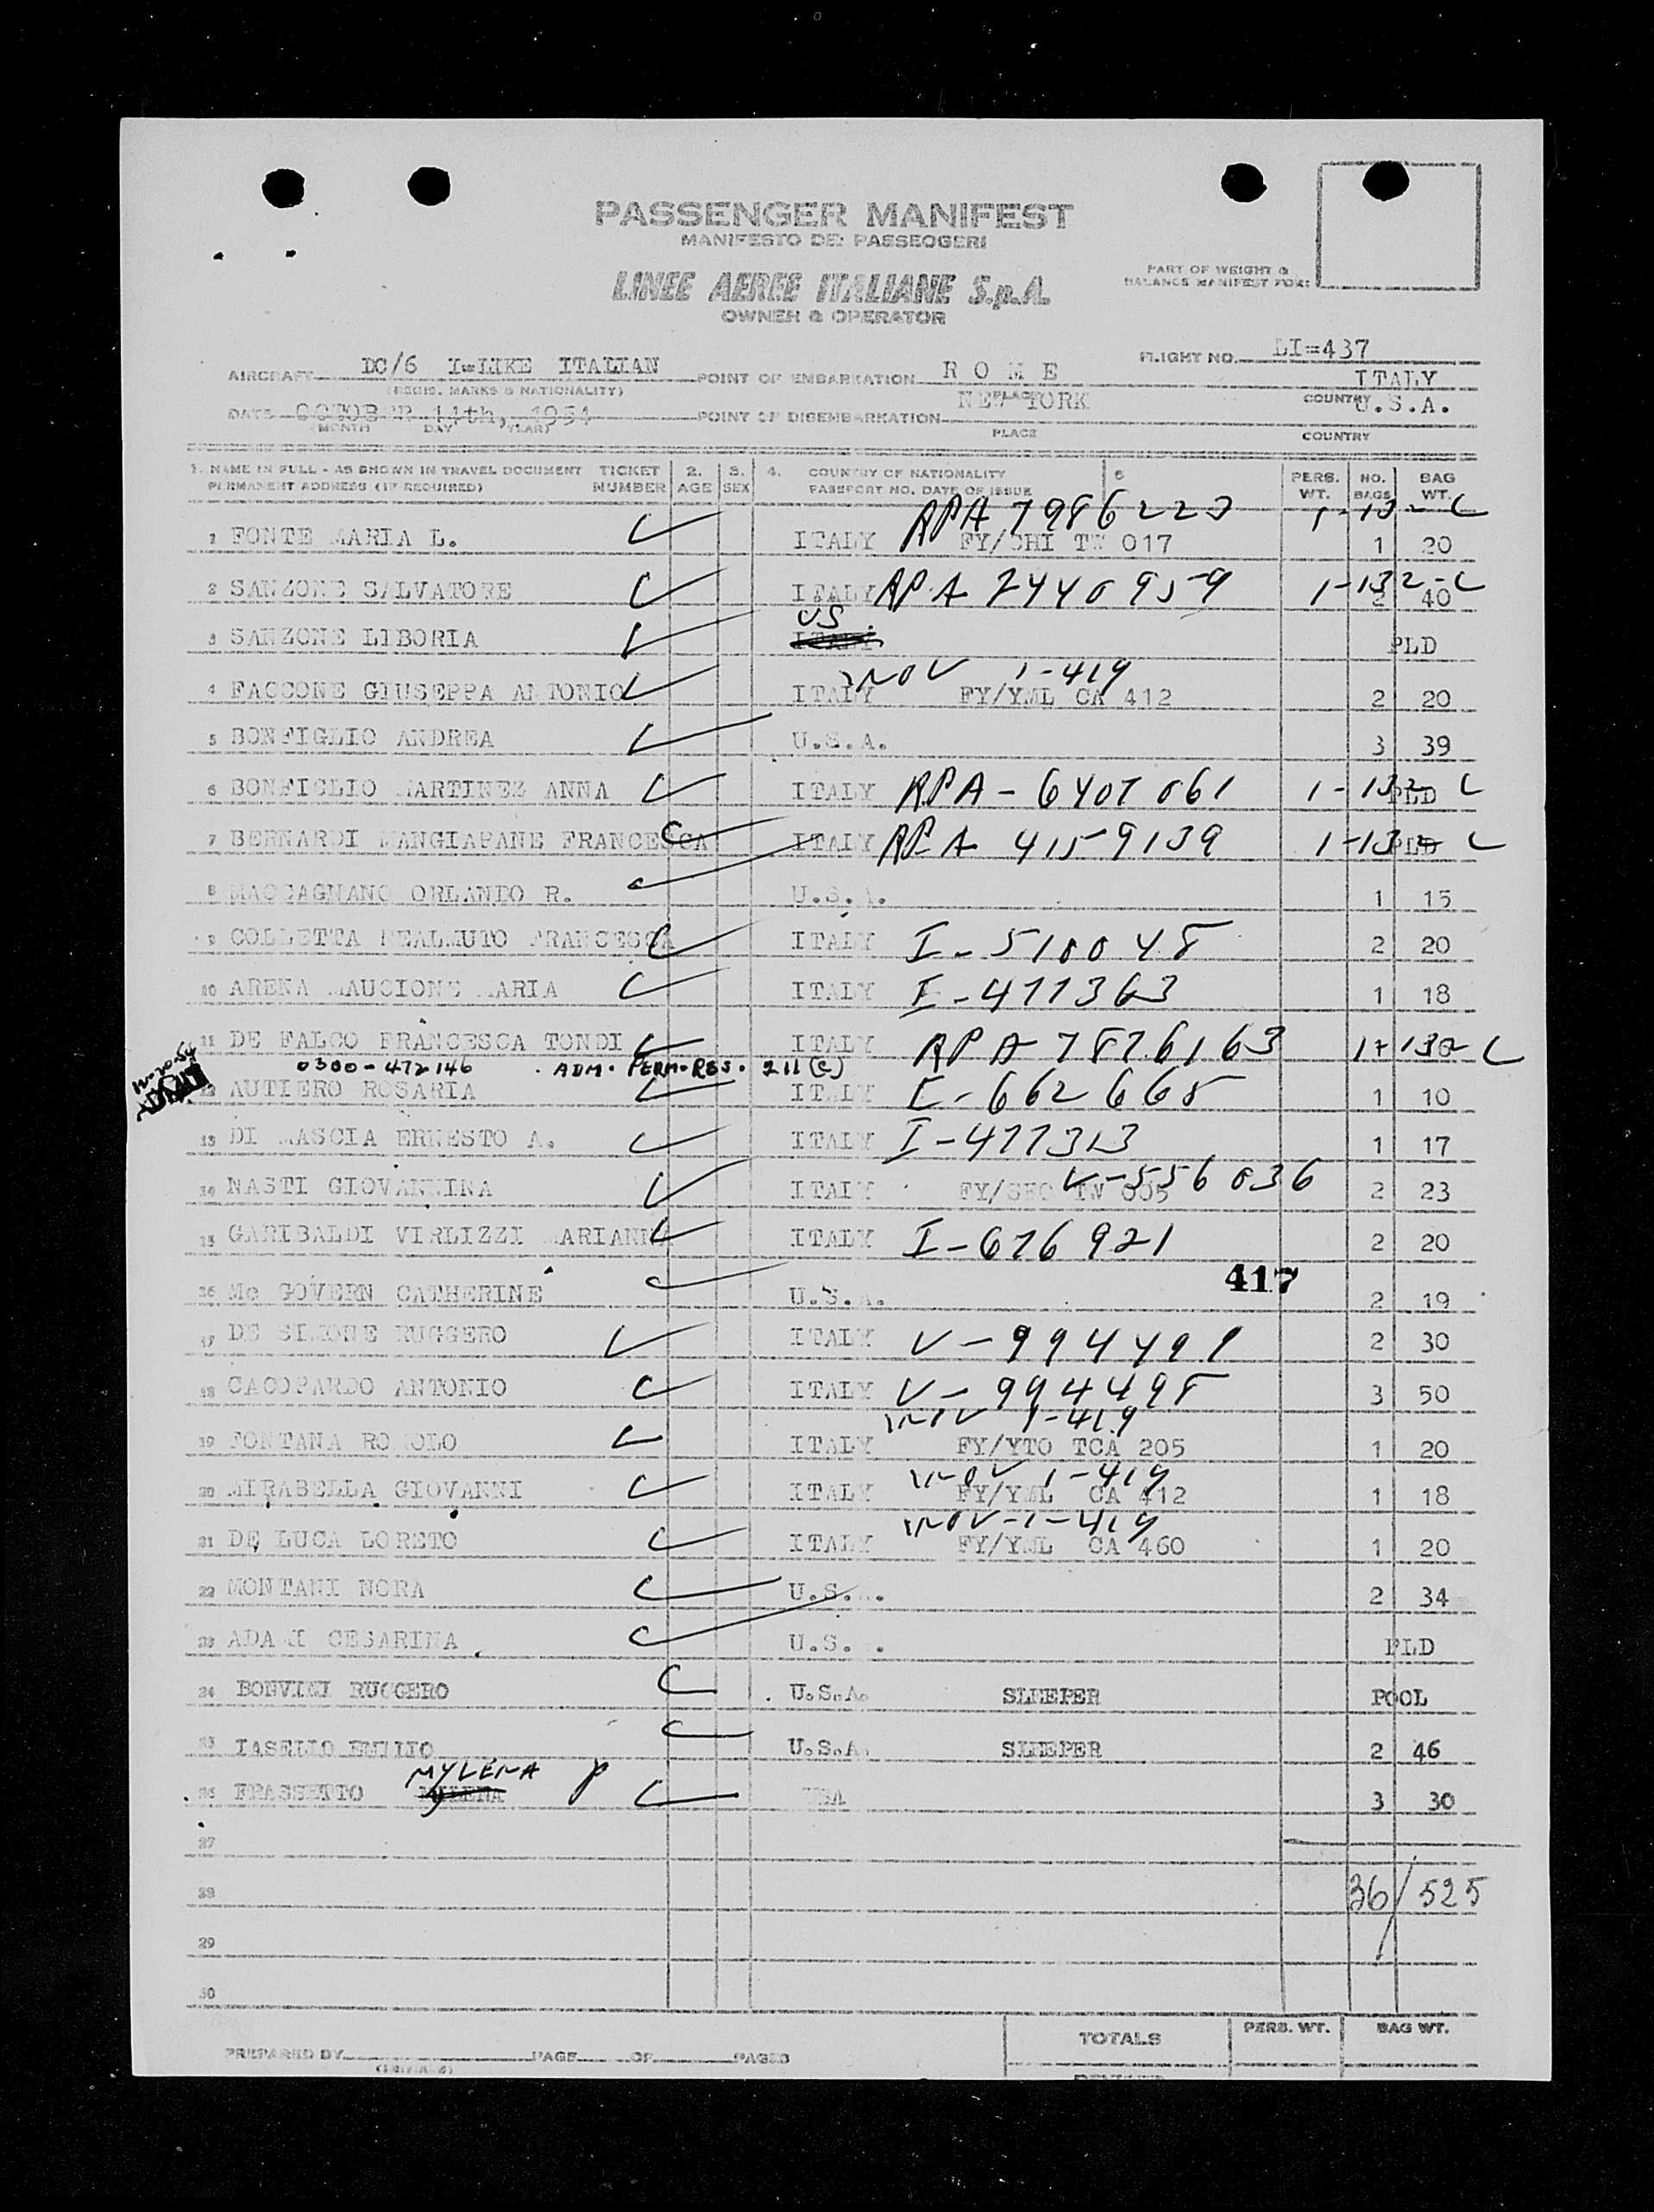 PASSENGER MANIFEST
MANIFESTO DEI PASSEGGERI
LINEE AEREE ITALIANE S.p.A.
OWNER & OPERATOR
PART OF WEIGHT &
BALANCE MANIFEST FOR:
FLIGHT NO. LI=437
AIRCRAFT DC/6 I=LIKE ITALIAN POINT OF EMBARKATION R O M E ITALY
(REGIS. MARKS & NATIONALITY) PLACE COUNTRY
DATE OCTOBER 14th, 1954 POINT OF DISEMBARKATION NEW YORK U.S.A.
(MONTH DAY YEAR) PLACE COUNTRY
1. NAME IN FULL - AS SHOWN IN TRAVEL DOCUMENT TICKET 2. 3. 4. COUNTRY OF NATIONALITY 5 PERS. NO. BAG
PERMANENT ADDRESS (IF REQUIRED) NUMBER AGE SEX PASSPORT NO. DATE OF ISSUE WT. BAGS WT.
RPA 7986223 1-132-C
1 FONTE MARIA L. ITALY FY/CHI TW 017 1 20
2 SANZONE SALVATORE ITALY RPA 7440959 1-132-C 2 40
US
3 SANZONE LIBORIA ITALY PLD
INOV 1-419
4 FACCONE GIUSEPPA ANTONIO ITALY FY/YML CA 412 2 20
5 BONFIGLIO ANDREA U.S.A. 3 39
6 BONFIGLIO MARTINEZ ANNA ITALY RPA-6407061 1-132 C PLD
7 BERNARDI MANGIAPANE FRANCESCA ITALY RPA 4159139 1-132 C PLD
8 MACCAGNANO ORLANDO R. U.S.A. 1 15
9 COLLETTA REALMUTO FRANCESCA ITALY I-510048 2 20
10 ARENA MAUCIONE MARIA ITALY I-477363 1 18
11 DE FALCO FRANCESCA TONDI ITALY RPA 7876163 1-132 C
0300-472146 ADM. PERM. RES. 211(C)
12 AUTIERO ROSARIA ITALY I-662668 1 10
13 DI MASCIA ERNESTO A. ITALY I-477313 1 17
14 NASTI GIOVANNINA ITALY FY/SFO TW 005 V-556036 2 23
15 GARIBALDI VIRLIZZI MARIANNA ITALY I-676921 2 20
417
16 Mc GOVERN CATHERINE U.S.A. 2 19
17 DE SIMONE RUGGERO ITALY V-994499 2 30
18 CACOPARDO ANTONIO ITALY V-994498 3 50
INOV 1-419
19 FONTANA ROMOLO ITALY FY/YTO TCA 205 1 20
INOV 1-419
20 MIRABELLA GIOVANNI ITALY FY/YML CA 412 1 18
INOV-1-419
21 DE LUCA LORETO ITALY FY/YML CA 460 1 20
22 MONTANI NORA U.S.A. 2 34
23 ADAMI CESARINA U.S.A. PLD
24 BONVINI RUGGERO U.S.A. SLEEPER POOL
25 IASELLO EMILIO U.S.A. SLEEPER 2 46
MYLENA P
26 FRASSETTO USA 3 30
27
28 36/525
29
30
TOTALS PERS. WT. BAG WT.
PREPARED BY PAGE OF PAGES
(INITIALS)